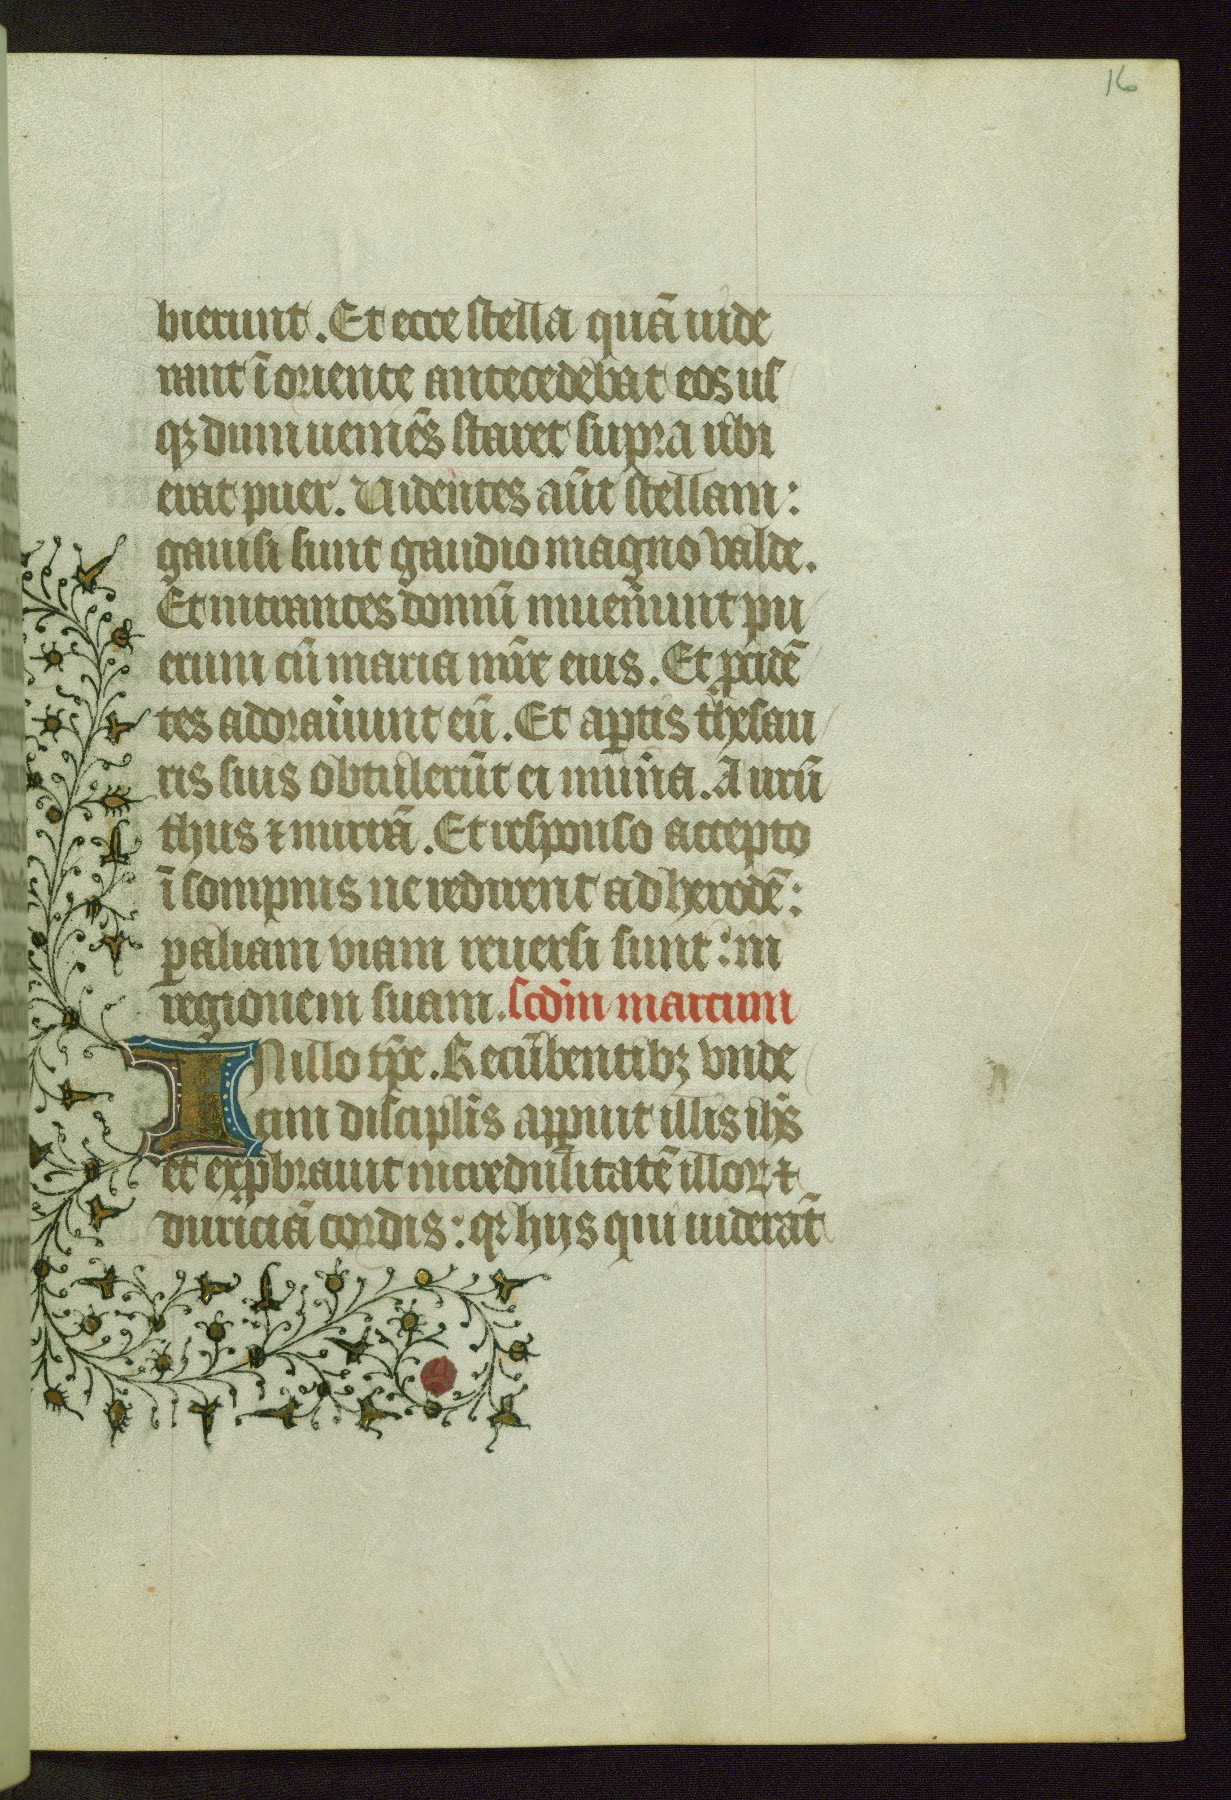 16
bierunt. Et ecce stella quā uide
rant ī oriente antecedebat eos us
qꝫ dum ueniēs staret supra ubi
erat puer. Videntes aūt stellam:
gauisi sunt gaudio magno valde.
Et intrantes domū inuen̄unt pu
erum cū maria mr̄e eius. Et ꝓcidē
tes adorauūnt eū. Et aꝑtis thesau
ris suis obtulerūt ei mun̄a. Aurū
thus ⁊ mirrā. Et responso accepto
ī sompnis ne redirent ad herodē:
ꝑ aliam viam reuersi sunt: in
regionem suam. scd̄m marcum
IN illo tp̄e. Recūbentibꝫ vnde
cim discipl̄is apꝑuit illis ih̄s
et exp̄brauit incredulitatē illoꝝ ⁊
duriciā cordis: qꝛ hijs qui uiderāt